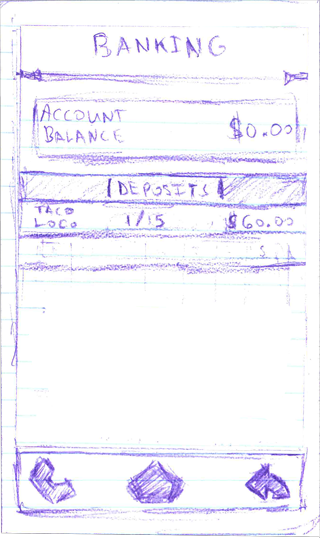 BANKING
ACCOUNT
BALANCE $0.00
DEPOSITS
TACO
LOCO 1/15 $60.00